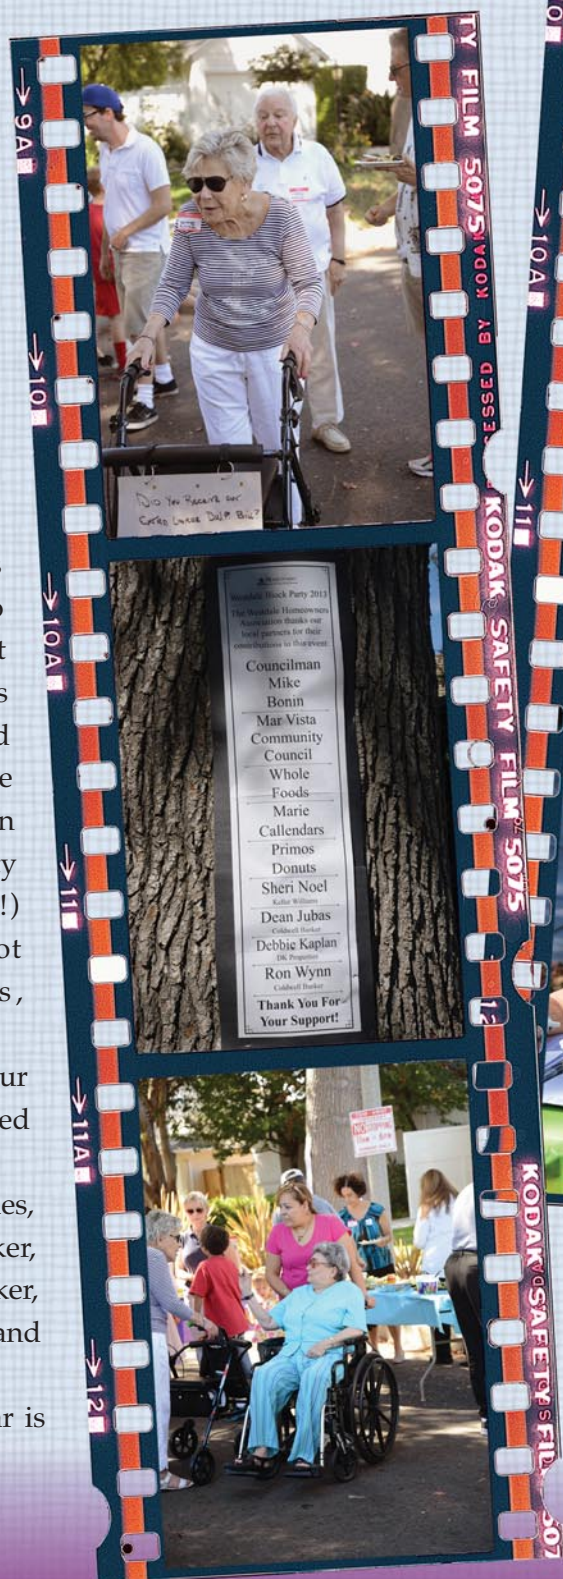 TY FILM 5075
CESSED BY KODAK
KODAK SAFETY FILM 5075
12
KODAK SAFETY FIL
507
→ 9A
→ 10
→ 10A
→ 11
→ 11A
→ 12
→ 10A
→ 11
Did You Receive our
Bill?
Westdale Block Party 2013
The Westdale Homeowners
Association thanks our
local partners for their
contributions to this event
Councilman
Mike
Bonin
Mar Vista
Community
Council
Whole
Foods
Marie
Callendars
Primos
Donuts
Sheri Noel
Keller Williams
Dean Jubas
Coldwell Banker
Debbie Kaplan
DK Properties
Ron Wynn
Coldwell Banker
Thank You For
Your Support!
NO STOPPING
t
s
d
e
n
y
!)
ot
s,
ur
ed
es,
ker,
ker,
and
r is